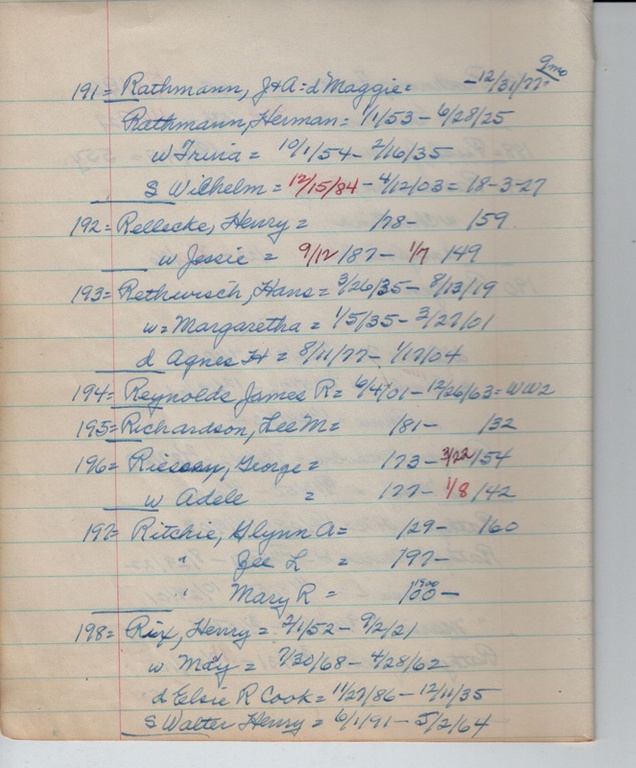 9mo
191= Rathmann, J+A=d Maggie= -12/31/77=
Rathmann, Herman= 1/1/53- 6/28/25
w Trivia = 10/1/54- 2/16/35
S Wilhelm = 12/15/84 - 4/12/03= 18-3-27
192= Rellecke, Henry = /78- /59
w Jessie = 9/12/87- 1/7/49
193= Rethwisch, Hans= 3/26/35- 8/13/19
w= Margaretha = 1/5/35- 3/27/01
d Agnes H = 8/11/77- 1/17/04
194= Reynolds James R= 6/4/01-12/26/63= WW2
195= Richardson, Lee M= /81- /32
196= George= /73-3/22/54
w Adele = /77- 1/8/42
197= Ritchie, Glynn A= /29- /60
" Zee L = /97-
" Mary R = 1900-
198= Rix, Henry = 2/1/52- 9/2/21
w May = 7/30/68- 4/28/62
d Elsie R Cook= 11/27/86- 12/11/35
S Walter Henry= 6/1/91- 5/2/64